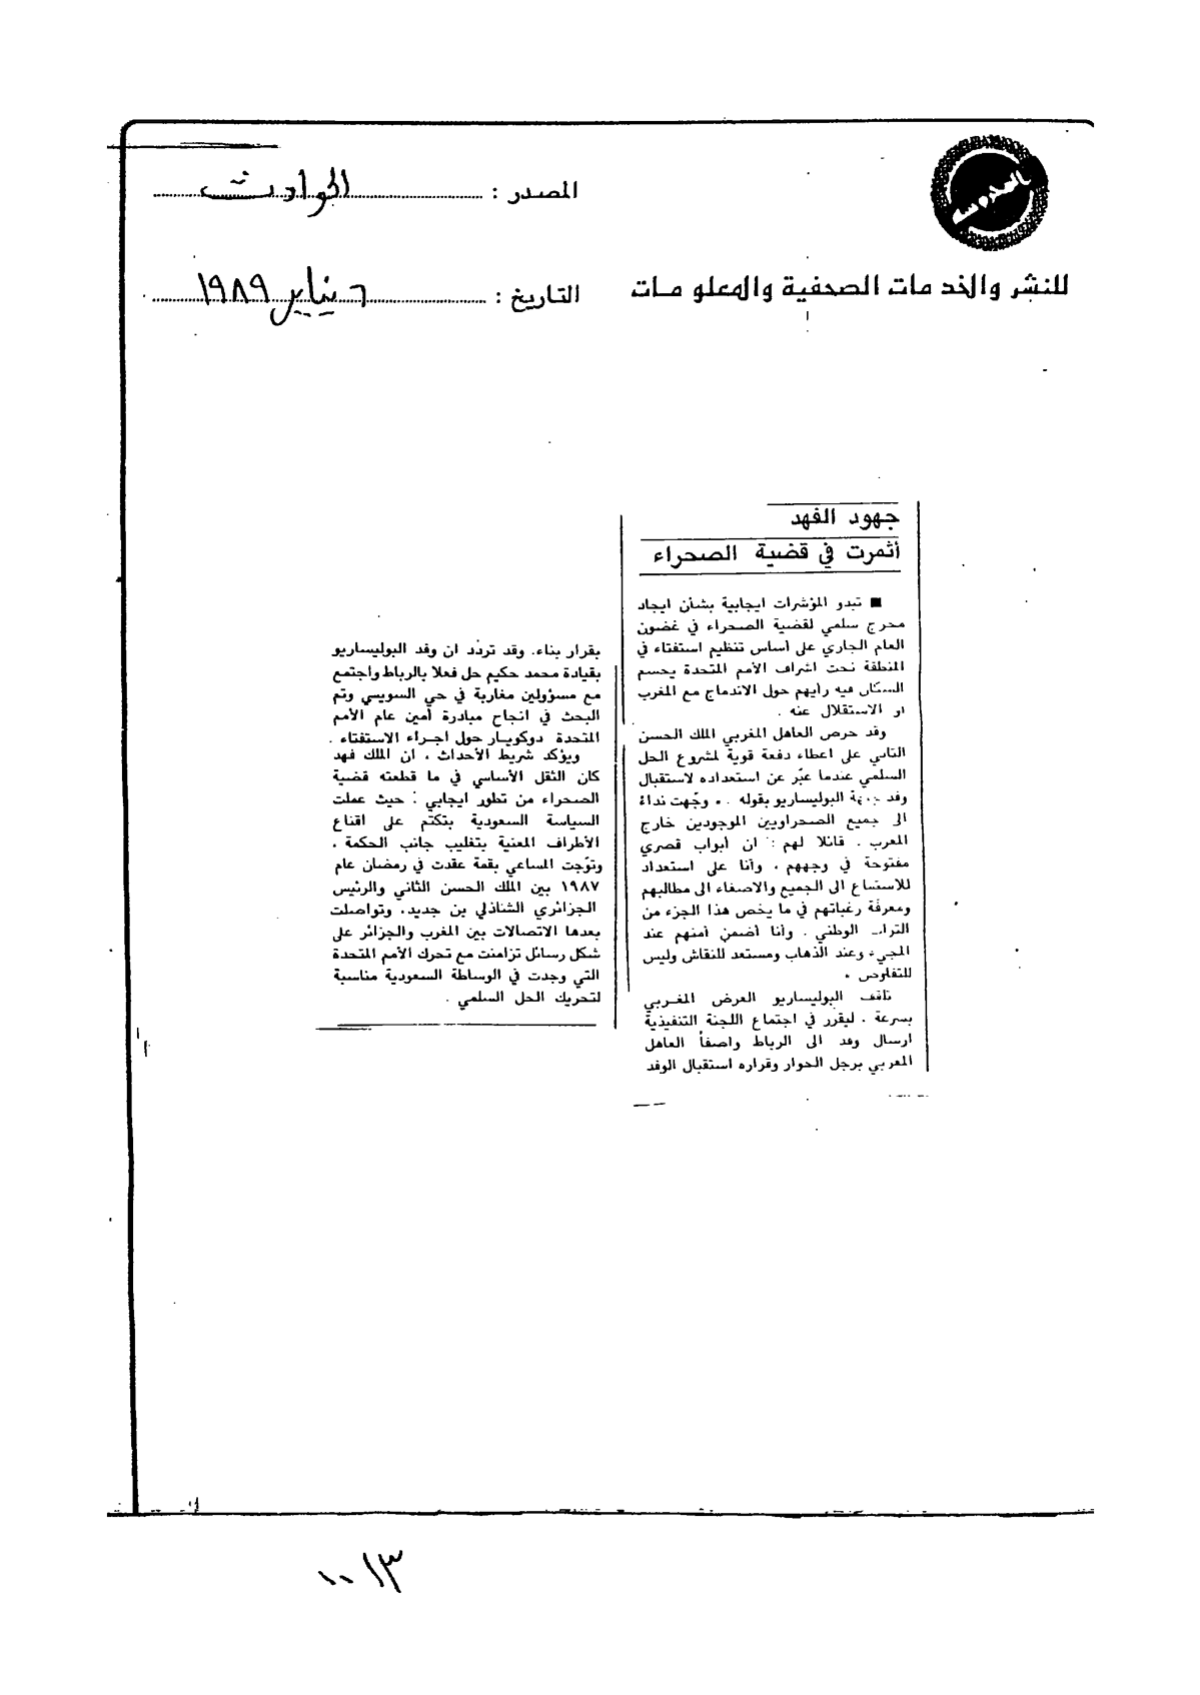 المصدر : الحوادث
للنشر والخدمات الصحفية والمعلومات
التاريخ : ٦ يناير ١٩٨٩
جهود الفهد
أثمرت في قضية الصحراء
■ تبدو المؤشرات ايجابية بشأن ايجاد
مخرج سلمي لقضية الصحراء في غضون
العام الجاري على أساس تنظيم استفتاء في
المنطقة تحت اشراف الأمم المتحدة يحسم
السكان فيه رأيهم حول الاندماج مع المغرب
او الاستقلال عنه .
وقد حرص العاهل المغربي الملك الحسن
الثاني على اعطاء دفعة قوية لمشروع الحل
السلمي عندما عبّر عن استعداده لاستقبال
وفد جبهة البوليساريو بقوله . « وجّهت نداءً
الى جميع الصحراويين الموجودين خارج
المغرب . قائلا لهم : ان أبواب قصري
مفتوحة في وجههم ، وأنا على استعداد
للاستماع الى الجميع والاصغاء الى مطالبهم
ومعرفة رغباتهم في ما يخص هذا الجزء من
التراب الوطني . وأنا أضمن أمنهم عند
المجيء وعند الذهاب ومستعد للنقاش وليس
للتفاوض »
تلقف البوليساريو العرض المغربي
بسرعة . ليقرر في اجتماع اللجنة التنفيذية
ارسال وفد الى الرباط واصفاً العاهل
المغربي برجل الحوار وقراره استقبال الوفد
بقرار بناء. وقد تردّد ان وفد البوليساريو
بقيادة محمد حكيم حل فعلا بالرباط واجتمع
مع مسؤولين مغاربة في حي السويسي وتم
البحث في انجاح مبادرة أمين عام الأمم
المتحدة دوكويار حول اجراء الاستفتاء .
ويؤكد شريط الأحداث ، ان الملك فهد
كان الثقل الأساسي في ما قطعته قضية
الصحراء من تطور ايجابي : حيث عملت
السياسة السعودية بتكتم على اقناع
الأطراف المعنية بتغليب جانب الحكمة ،
وتوّجت المساعي بقمة عقدت في رمضان عام
١٩٨٧ بين الملك الحسن الثاني والرئيس
الجزائري الشاذلي بن جديد، وتواصلت
بعدها الاتصالات بين المغرب والجزائر على
شكل رسائل تزامنت مع تحرك الأمم المتحدة
التي وجدت في الوساطة السعودية مناسبة
لتحريك الحل السلمي .